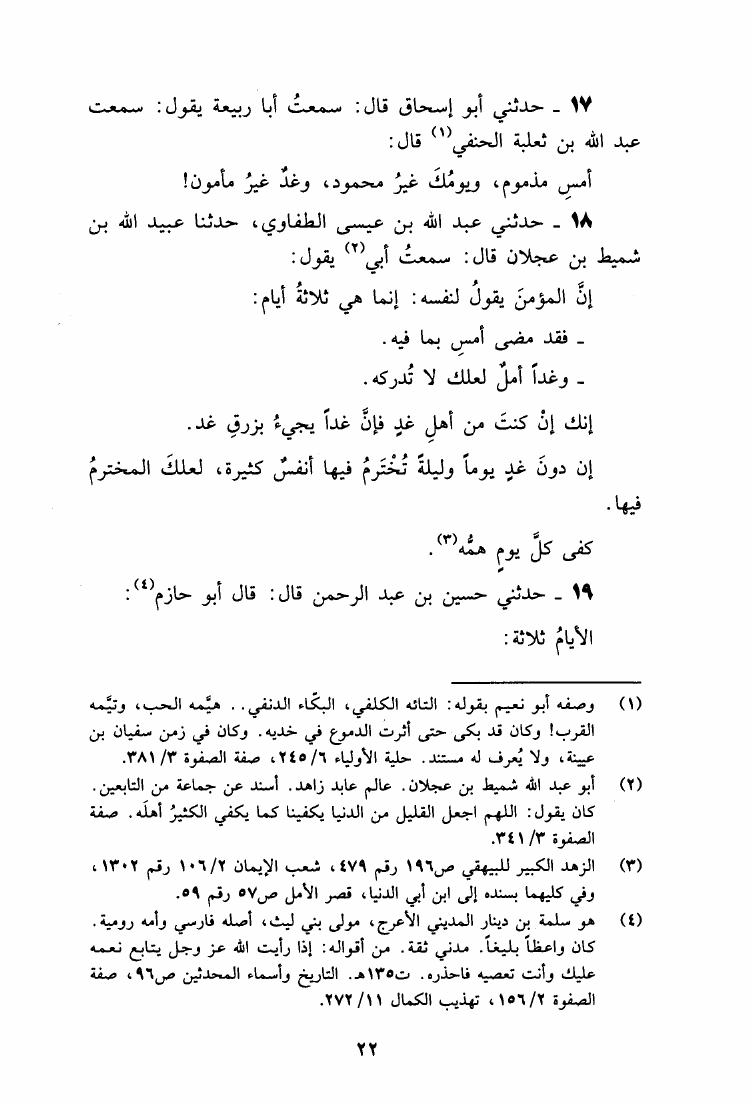 ١٧ ـ حدثني أبو إسحاق قال: سمعتُ أبا ربيعة يقول: سمعت
عبد الله بن ثعلبة الحنفي(١) قال:
أمسِ مذموم، ويومُكَ غيرُ محمود، وغدٌ غيرُ مأمون!
١٨ ـ حدثني عبد الله بن عيسى الطفاوي، حدثنا عبيد الله بن
شميط بن عجلان قال: سمعتُ أبي(٢) يقول:
إنَّ المؤمنَ يقولُ لنفسه: إنما هي ثلاثةُ أيام:
ـ فقد مضى أمسِ بما فيه.
ـ وغداً أملٌ لعلك لا تُدركه.
إنك إنْ كنتَ من أهلِ غدٍ فإنَّ غداً يجيءُ بزرقِ غد.
إن دونَ غدٍ يوماً وليلةً تُخْتَرمُ فيها أنفسٌ كثيرة، لعلكَ المخترمُ
فيها.
كفى كلَّ يومٍ همُّه(٣).
١٩ ـ حدثني حسين بن عبد الرحمن قال: قال أبو حازم(٤):
الأيامُ ثلاثة:
(١) وصفه أبو نعيم بقوله: التائه الكلفي، البكّاء الدنفي.. هيَّمه الحب، وتيَّمه
القرب! وكان قد بكى حتى أثرت الدموع في خديه. وكان في زمن سفيان بن
عيينة، ولا يُعرف له مستند. حلية الأولياء ٢٤٥/٦، صفة الصفوة ٣٨١/٣.
(٢) أبو عبد الله شميط بن عجلان. عالم عابد زاهد. أسند عن جماعة من التابعين.
كان يقول: اللهم اجعل القليل من الدنيا يكفينا كما يكفي الكثيرُ أهلَه. صفة
الصفوة ٣٤١/٣.
(٣) الزهد الكبير للبيهقي ص١٩٦ رقم ٤٧٩، شعب الإيمان ١٠٦/٢ رقم ١٣٠٢،
وفي كليهما بسنده إلى ابن أبي الدنيا، قصر الأمل ص٥٧ رقم ٥٩.
(٤) هو سلمة بن دينار المديني الأعرج، مولى بني ليث، أصله فارسي وأمه رومية.
كان واعظاً بليغاً. مدني ثقة. من أقواله: إذا رأيت الله عز وجل يتابع نعمه
عليك وأنت تعصيه فاحذره. ت١٣٥هـ. التاريخ وأسماء المحدثين ص٩٦، صفة
الصفوة ١٥٦/٢، تهذيب الكمال ٢٧٢/١١.
٢٢